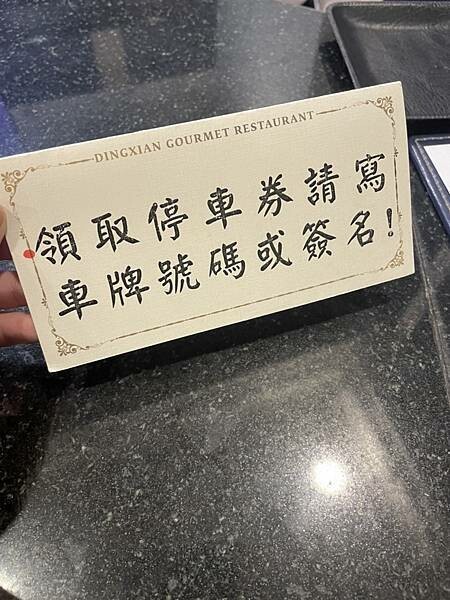 DINGXIAN GOURMET RESTAURANT
領取停車券請寫
車牌號碼或簽名!